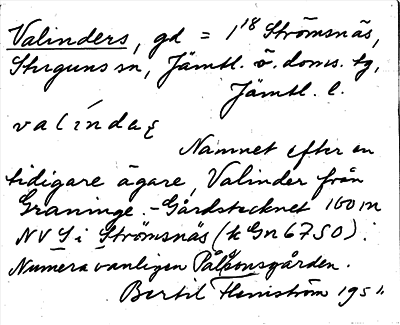 Valinders, gd = 1¹⁸ Strömsnäs,
Stuguns sn, Jämtl. ö. doms. tg,
Jämtl. l.
valində
Namnet efter en
tidigare ägare, Valinder från
Graninge. - Gårdstecknet 100 m
NV S i Strömsnäs (k Gn 6750).
Numera vanligen Pålssonsgården.
Bertil Flemström 1951.